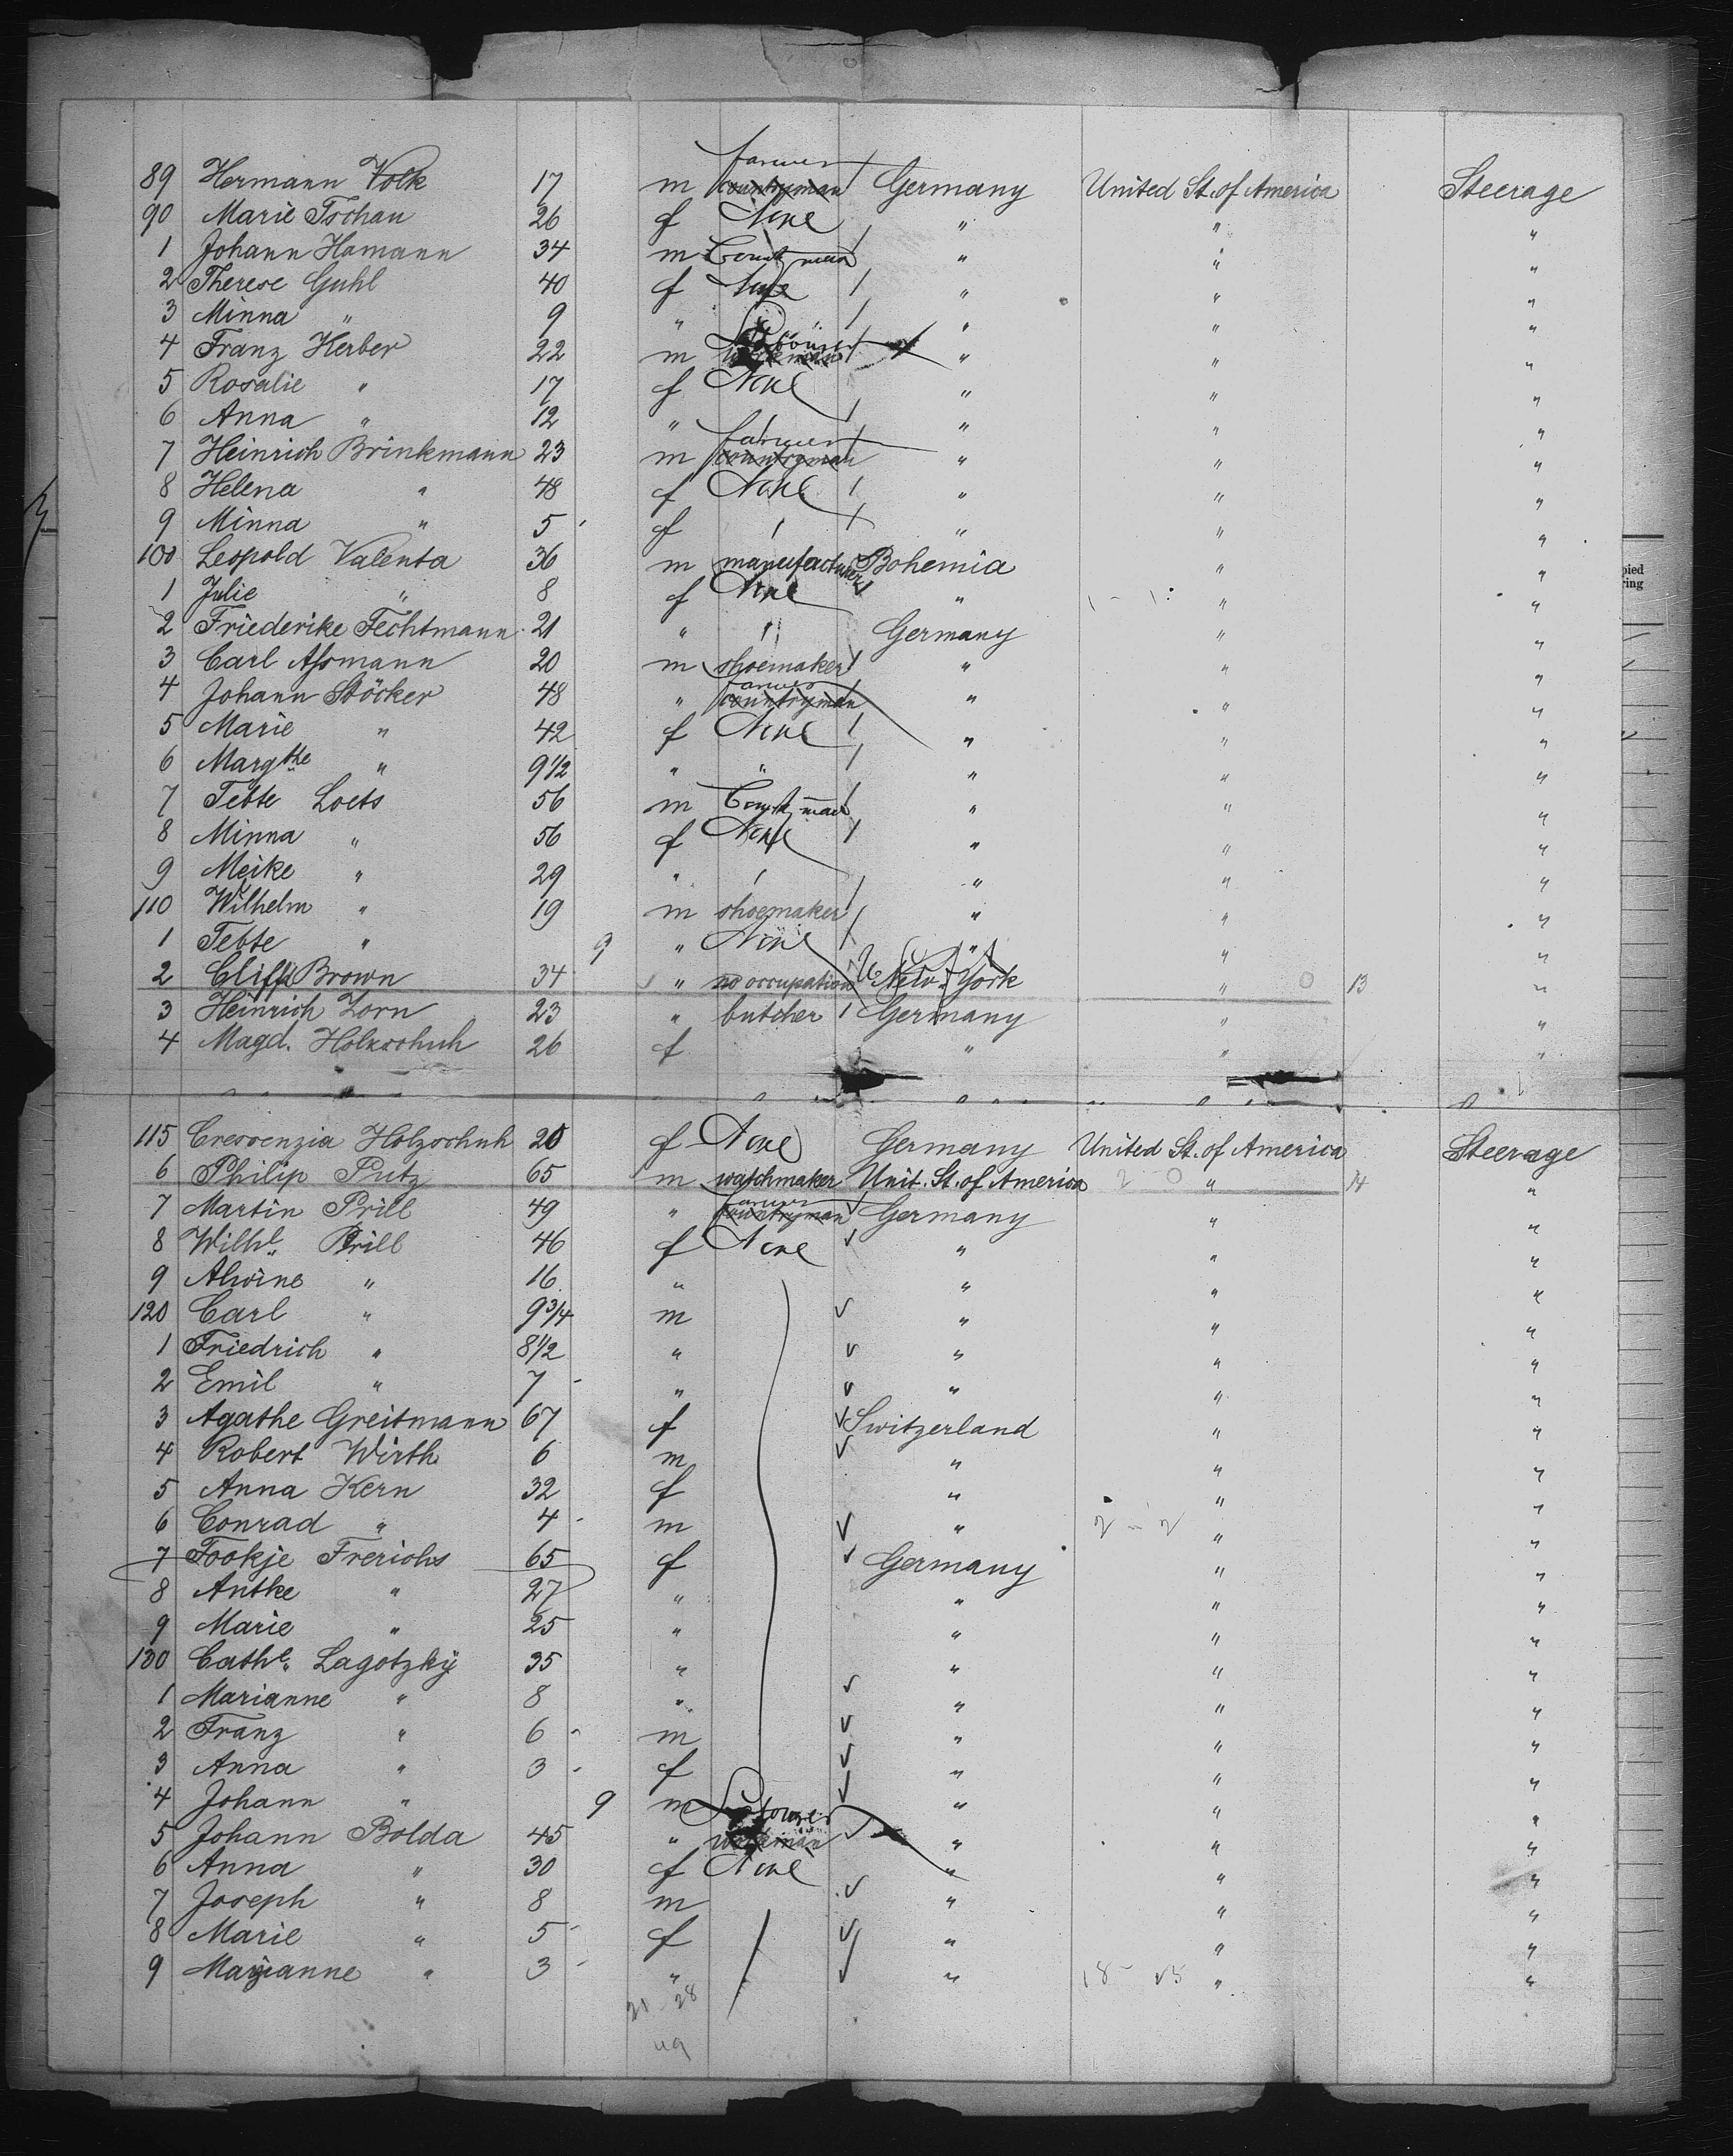 89 Hermann Volk 17 m farmer countryman Germany United St. of America Steerage
90 Marie Tschan 26 f None " " "
1 Johann Hamann 34 m " " "
2 Therese Guhl 40 f " " "
3 Minna " 9 " " " "
4 Franz Herber 22 m Labourer workman " " "
5 Rosalie " 17 f None " " "
6 Anna " 12 " " " "
7 Heinrich Brinkmann 23 m farmer countryman " " "
8 Helena " 48 f None " " "
9 Minna " 5 f " " "
100 Leopold Valenta 36 m manufacturer Bohemia " "
1 Julie " 8 f None " " "
2 Friederike Fechtmann 21 " " Germany " "
3 Carl Aſsmann 20 m shoemaker " " "
4 Johann Stöcker 48 " farmer countryman " " "
5 Marie " 42 f None " " "
6 Margthe " 9 1/2 " " " " "
7 Tebte Loets 56 m " " "
8 Minna " 56 f None " " "
9 Meike " 29 " " " "
110 Wilhelm " 19 m shoemaker " " "
1 Tebte " 9 " None " " "
2 Brown 34 " no occupation New-York " 13 "
3 Heinrich Zorn 23 " butcher Germany " "
4 Magd. Holzschuh 26 f " " "
115 Crescenzia Holzschuh 20 f None Germany United St. of America Steerage
6 Philip Putz 65 m watchmaker Unit. St. of America " 14 "
7 Martin Prill 49 " farmer countryman Germany " "
8 Wilhl. Prill 46 f None " " "
9 Alwine " 16 " " " "
120 Carl " 9 3/4 m " " "
1 Friedrich " 8 1/2 " " " "
2 Emil " 7 " " " "
3 Agathe Greitmann 67 f Switzerland " "
4 Robert Wirth 6 m " " "
5 Anna Kern 32 f " " "
6 Conrad " 4 m " " "
7 Fookje Frerichs 65 f Germany " "
8 Antke " 27 " " " "
9 Marie " 25 " " " "
130 Cathe. Lagotzky 35 " " " "
1 Marianne " 8 " " " "
2 Franz " 6 m " " "
3 Anna " 3 f " " "
4 Johann " 9 m " " "
5 Johann Bolda 45 " Labourer workman " " "
6 Anna " 30 f None " " "
7 Joseph " 8 m " " "
8 Marie " 5 f " " "
9 Marianne " 3 " " " "